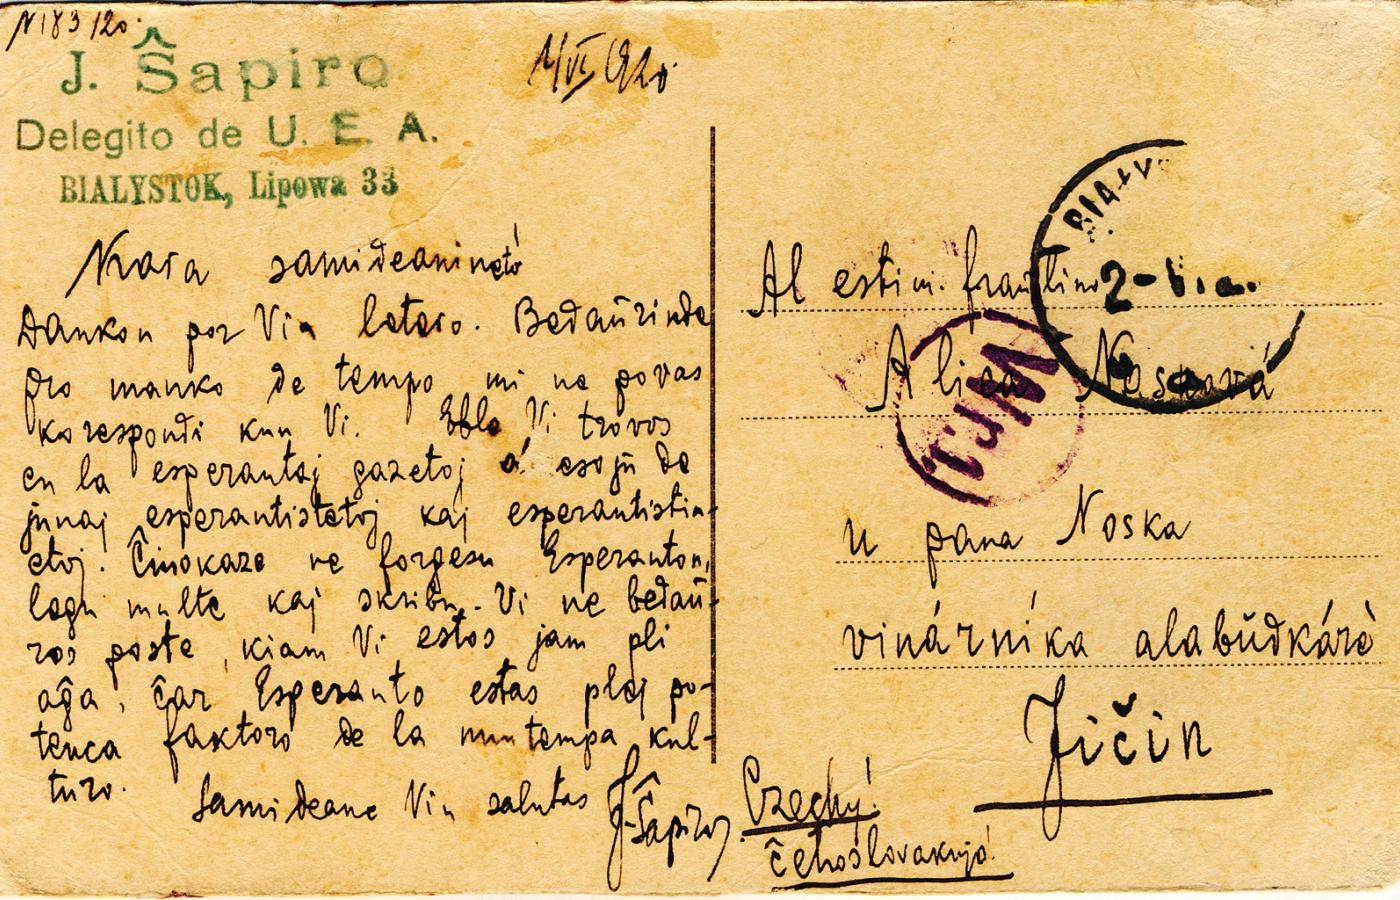 N183/20.
J. Ŝapiro
Delegito de U. E. A.
BIALYSTOK, Lipowa 33
1/VI 1920.
Kara samideanineto
Dankon por Vin letero. Bedaŭrinde
pro manko de tempo mi ne povas
korespondi kun Vi. Eble Vi trovos
en la esperantaj gazetoj esojn de
junaj esperantistetoj kaj esperantistin-
etoj. Ĉiuokaze ne forgesu Esperanton,
legu multe kaj skribu. Vi ne bedaŭ-
ros poste, kiam Vi estos jam pli
aĝa, ĉar Esperanto estas plej po-
tenca faktoro de la nuntempa kul-
turo.
Samideane Vin salutas J. Ŝapiro
BIALY
2-VI
Al estim. fraŭlino
Alica Nosková
u pana Noska
vinárníka
Jičín
Czechy!
Ĉeĥoslovakujo!